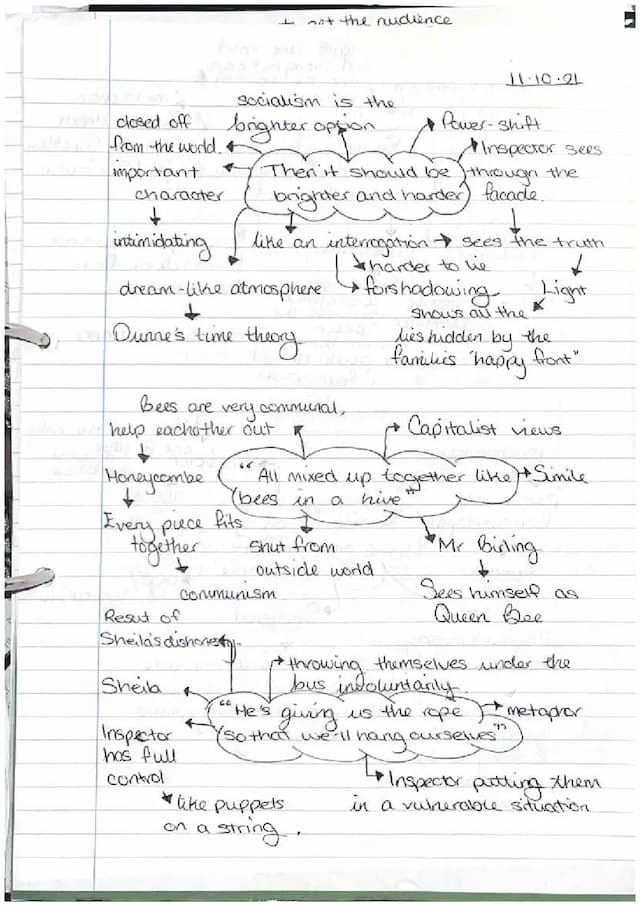 to get the audience
11.10.21
socialism is the
brighter option
closed off
from the world.
important
character
intimidating
Power-shift
Inspector sees
through the
facade.
Then it should be
brighter and harder
like an interrogation
sees the truth
harder to lie
forshadowing
dream-like atmosphere
Dunne's time theory
Light
shows all the
lies hidden by the
families "happy front"
Bees are very communal,
help eachother out
Honeycombe
Every piece fits
together
communism
Capitalist views
"All mixed up together like
bees in a hive"
Simile
shut from
outside world
Mr Birling
Sees himself as
Queen Bee
Result of
Sheila's dishonesty.
throwing themselves under the
bus involuntarily.
Sheila
"He's giving us the rope
so that we'll hang ourselves"
metaphor
Inspector
has full
control
like puppets
on a string.
Inspector putting them
in a vulnerable situation